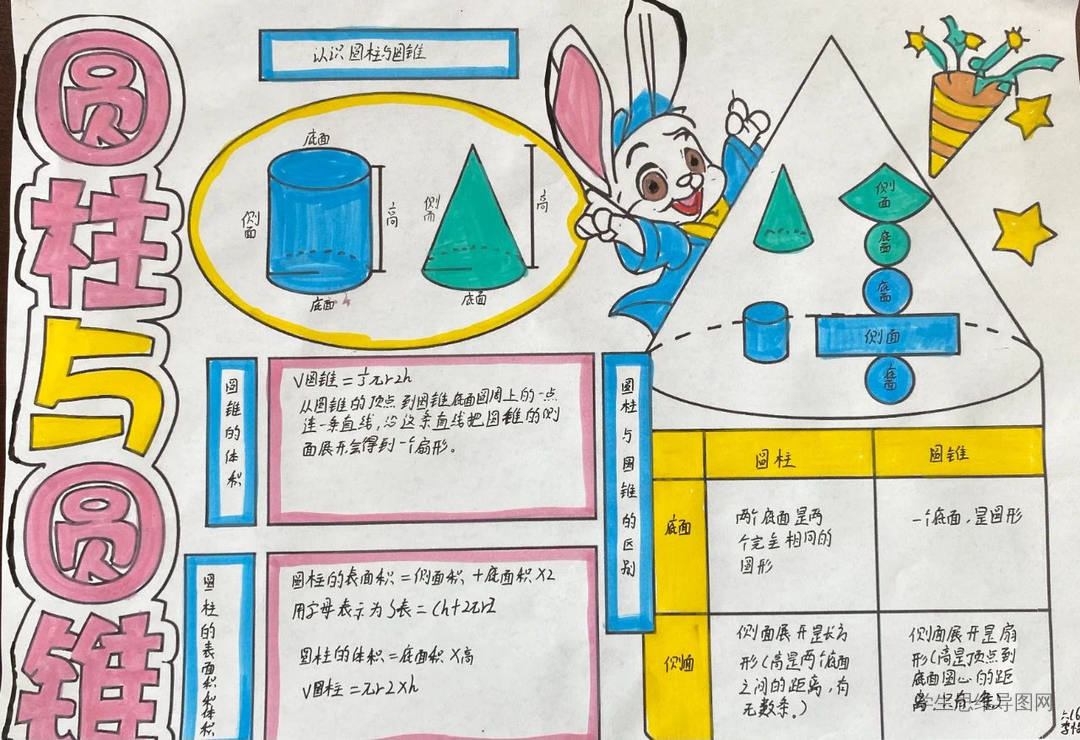 圆柱与圆锥
认识圆柱与圆锥
底面
侧面
高
底面
侧面
高
底面
侧面
底面
底面
侧面
底面
圆锥的体积
V圆锥=⅓πr2h
从圆锥的顶点到圆锥底面圆周上的一点
连一条直线,沿这条直线把圆锥的侧
面展开会得到一个扇形。
圆柱的表面积和体积
圆柱的表面积=侧面积+底面积×2
用字母表示为S表=Ch+2πr2
圆柱的体积=底面积×高
V圆柱=πr2×h
圆柱与圆锥的区别
圆柱
圆锥
底面
两个底面是两
个完全相同的
圆形
一个底面,是圆形
侧面
侧面展开是长方
形(高是两个底面
之间的距离,有
无数条。)
侧面展开是扇
形(高是顶点到
底面圆心的距
离,只有一条)
学生思维导图网